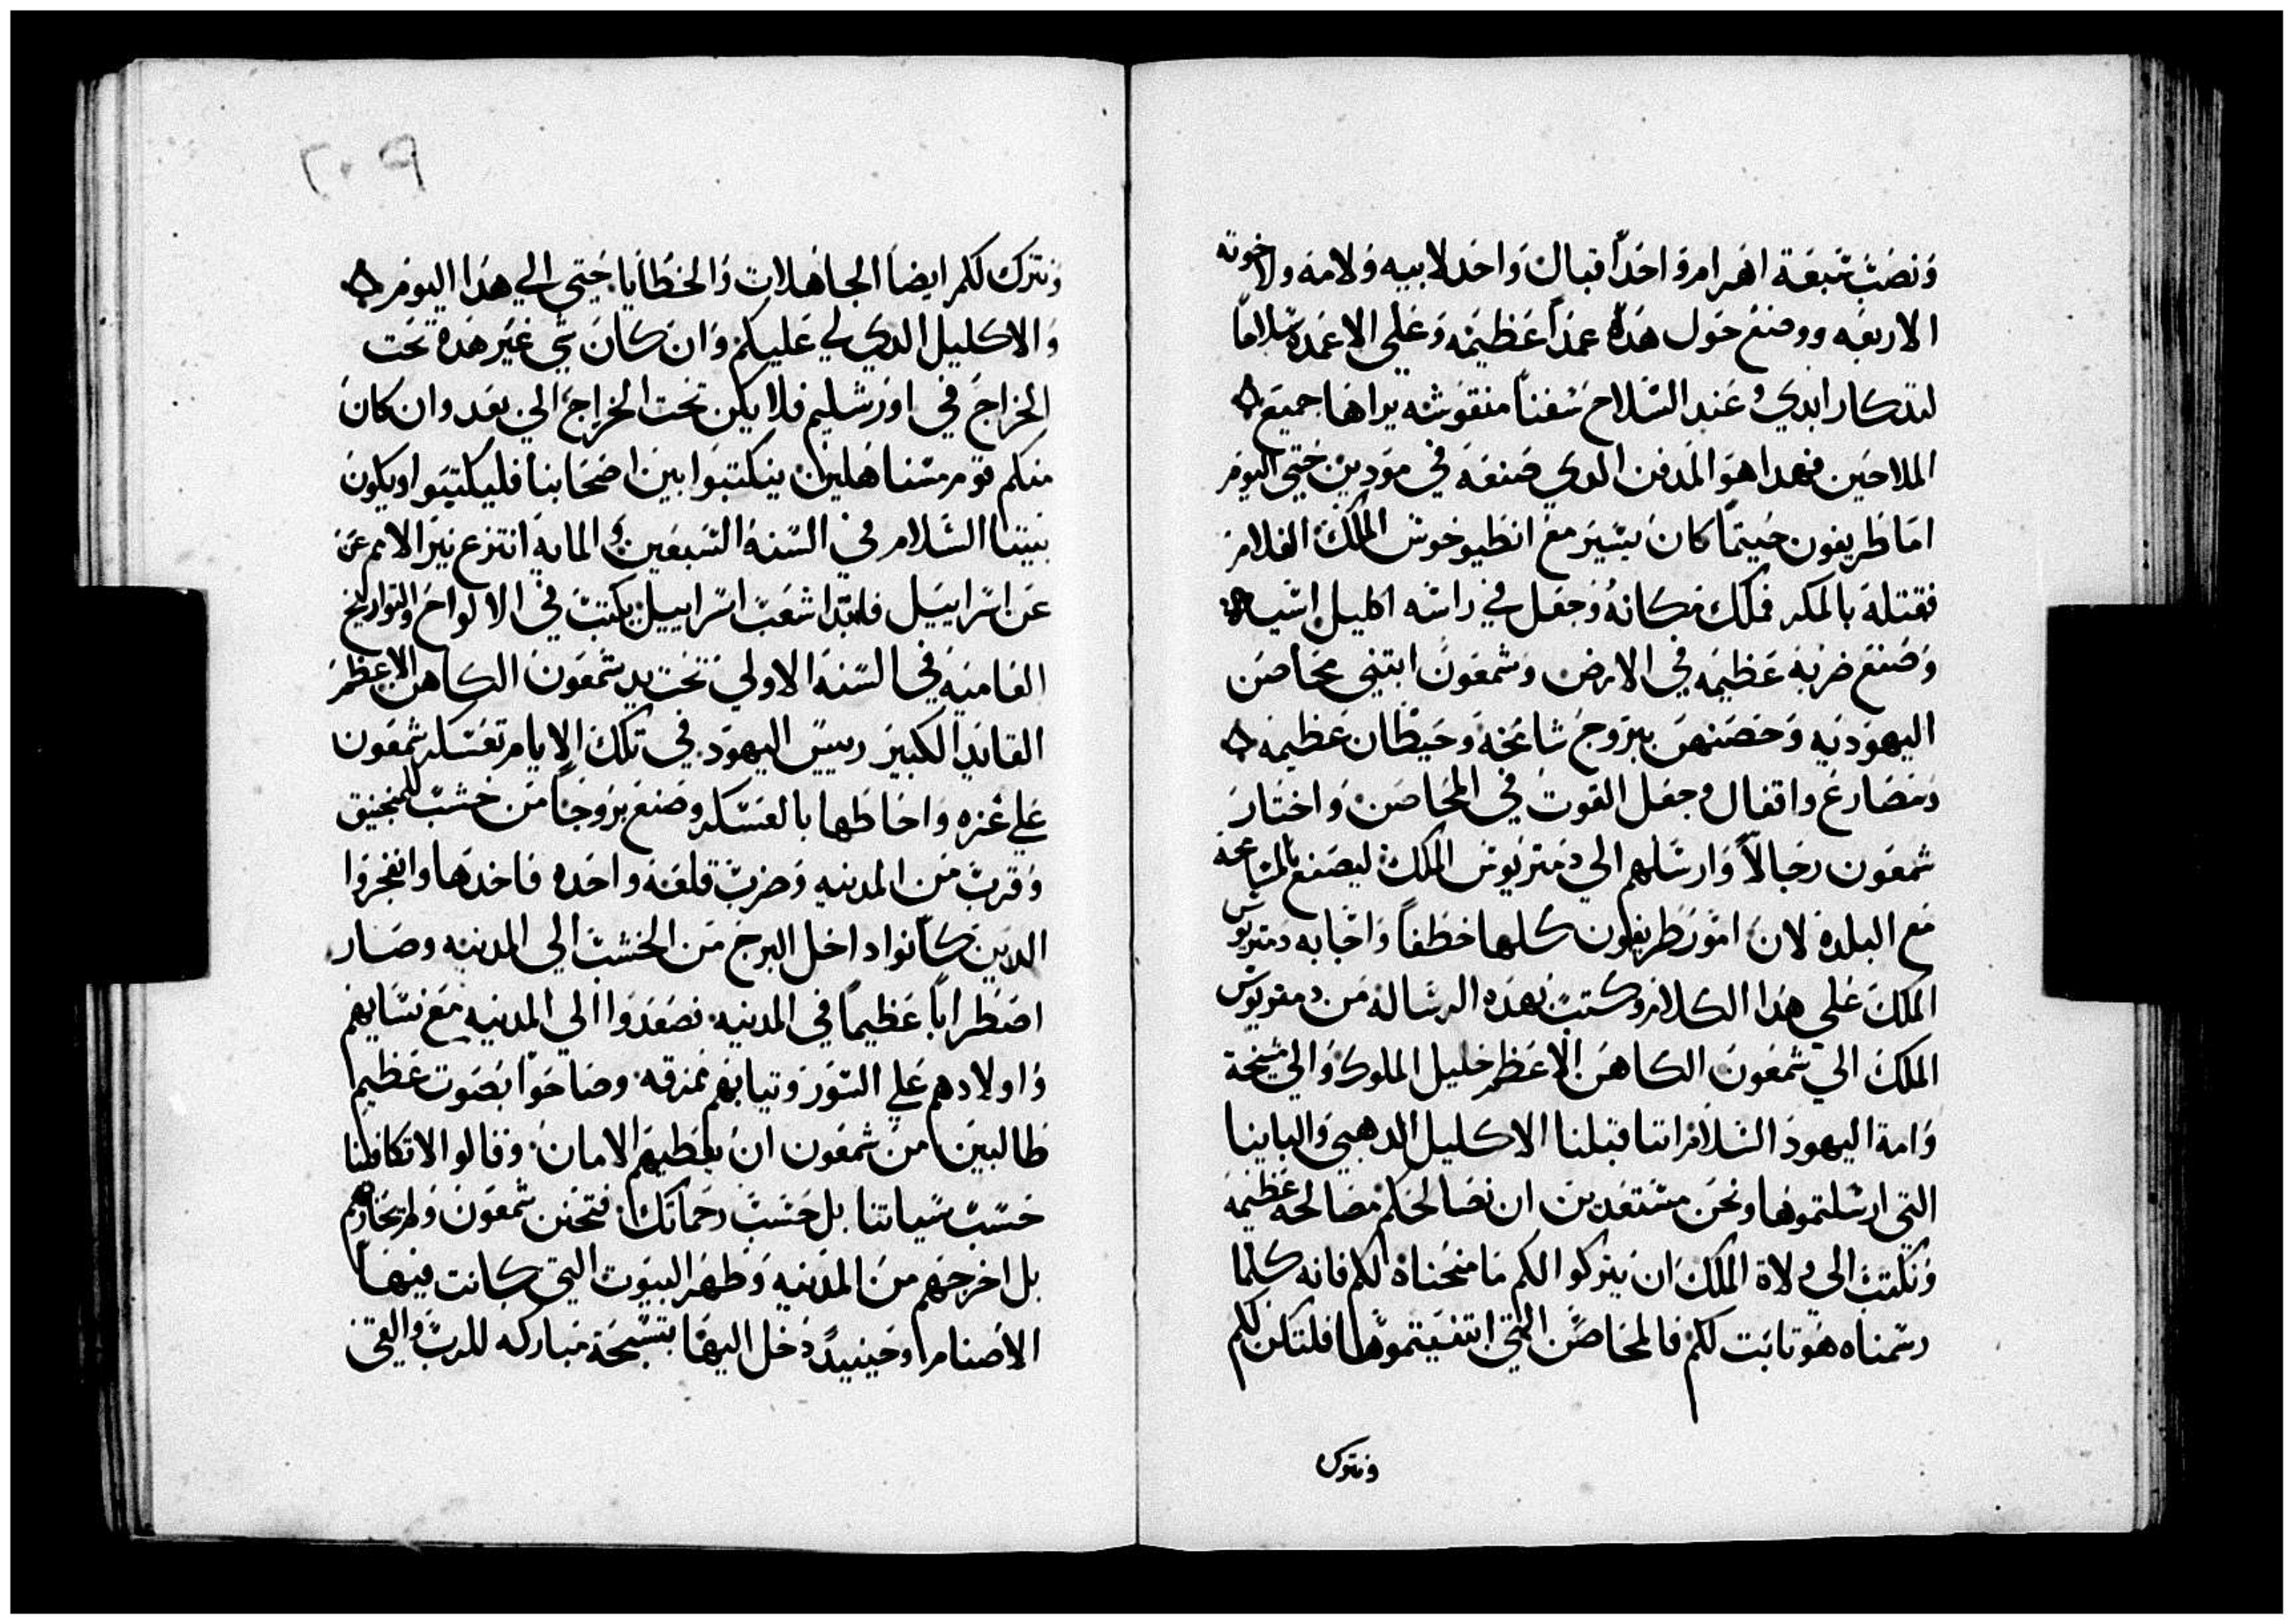 ونصب سبعة اهرام واحدا قبال واحد لابيه ولامه ولاخوته
الاربعه ووضع حول هده عمدا عظيمه وعلي الاعمده سلاما
لتدكار ابدي وعند السلاح سفنا منقوشه يراها جميع
الملاحين فهدا هو المدفن الدي صنعه في مودين حتي اليوم
اما طريفون حيتما كان يسير مع انطيوخوس الملك الغلام
فقتله بالمكر فملك مكانه وجعل في راسه اكليل اسيا
وصنع ضربه عظيمه في الارض وشمعون ابتني محاصن
اليهوديه وحصنهن ببروج شامخه وحيطان عظيمه
ومصارع واقفال وجعل القوت في المحاصن واختار
شمعون رجالا وارسلهم الي دمتريوس الملك ليصنع المسامحه
مع البلده لان امور طريفون كلها خطفا واجابه دمتريوس
الملك علي هدا الكلام وكتب بهده الرساله من دمتريوس
الملك الي شمعون الكاهن الاعظم خليل الملوك والي مشيخة
وامة اليهود السلام اننا قبلنا الاكليل الدهبي والباينا
التي ارسلتموها ونحن مستعدين ان نصالحكم مصالحه عظيمه
ونكتب الي ولاة الملك ان يتركوا لكم ما منحناه لكم فانه كلما
رسمناه هو تابت لكم فالمحاصن التي ابتنيتموها فلتكن لكم
ونترك
٢٠٩
ونترك لكم ايضا الجاهلات والخطايا حتي الي هدا اليوم
والاكليل الدي لي عليكم وان كان شي غير هده تحت
الخراج في اورشليم فلا يكن تحت الخراج الي بعد وان كان
منكم قوم مستاهلين ينكتبوا بين اصحابنا فليكتبوا ويكون
بيننا السلام في السنه السبعين والمايه انتزع نير الامم عن
عن اسراييل فابتدا شعب اسراييل يكتب في الالواح والتواريخ
العاميه في السنه الاولي تحت يد شمعون الكاهن الاعظم
القايد الكبير رييس اليهود في تلك الايام تعسكر شمعون
علي غزه واحاطها بالعسكر وصنع بروجا من خشب للمنجنيق
وقرب من المدينه وضرب قلعه واحده فاخدها وانفجروا
الدين كانوا داخل البرج من الخشب الي المدينه وصار
اضطرابا عظيما في المدينه فصعدوا الي المدينه مع نسايهم
واولادهم علي السور وتيابهم ممزقه وصاحوا بصوت عظيم
طالبين من شمعون ان يعطيهم الامان وقالوا لا تكافينا
حسب سياتنا بل حسب رحماتك فتحنن شمعون ولم يحاربهم
بل اخرجهم من المدينه وطهر البيوت التي كانت فيها
الاصنام وحينيد دخل اليها بتسبحة مباركه للرب والقي